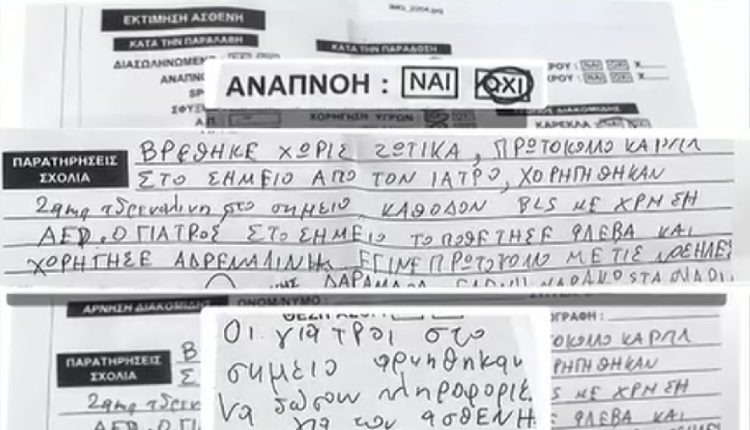 ΕΚΤΙΜΗΣΗ ΑΣΘΕΝΗ
ΚΑΤΑ ΤΗΝ ΠΑΡΑΛΑΒΗ
ΚΑΤΑ ΤΗΝ ΠΑΡΑΔΟΣΗ
ΔΙΑΣΩΛΗΝΩΜΕΝ
ΑΝΑΠΝΟ
ΑΝΑΠΝΟΗ : ΝΑΙ ΟΧΙ
ΡΟΥ : ΝΑΙ ΟΧΙ
ΣΦΥΞ
Α.Π.
ΧΟΡΗΓΗΣΗ ΥΓΡΩΝ
ΔΙΑΚΟΜΙΔΗΣ
ΚΑΡΕΚΛΑ
ΠΑΡΑΤΗΡΗΣΕΙΣ
ΣΧΟΛΙΑ
ΒΡΕΘΗΚΕ ΧΩΡΙΣ ΖΩΤΙΚΑ, ΠΡΩΤΟΚΟΛΛΟ ΚΑΡΠΑ
ΣΤΟ ΣΗΜΕΙΟ ΑΠΟ ΤΟΝ ΙΑΤΡΟ, ΧΟΡΗΓΗΘΗΚΑΝ
2amp αδρεναλινη στο σημειο ΚΑΘΟΔΟΝ BLS ΜΕ ΧΡΗΣΗ
ΑΕΔ. Ο ΓΙΑΤΡΟΣ ΣΤΟ ΣΗΜΕΙΟ ΤΟΠΟΘΕΤΗΣΕ ΦΛΕΒΑ ΚΑΙ
ΧΟΡΗΓΗΣΕ ΑΔΡΕΝΑΛΙΝΗ ΕΓΙΝΕ ΠΡΩΤΟΚΟΛΛΟ ΜΕ ΤΙΣ
ΑΡΝΗΣΗ ΔΙΑΚΟΜΙΔΗΣ
ΟΝΟΜ/ΝΥΜΟ :
ΟΓΡΑΦΗ :
Οι γιατροι στο
σημειο αρνηθηκαν
να δωσουν πληροφοριες
για τον ασθΕΝΗ
ΠΑΡΑΤΗΡΗΣΕΙΣ
ΣΧΟΛΙΑ
Β
Σ
2amp αδρε
ΑΕΔ. Ο
ΤΟΚΟΛΛΟ ΚΑΡΠΑ
ΧΟΡΗΓΗΘΗΚΑΝ
BLS ΜΕ ΧΡΗΣΗ
ΦΛΕΒΑ ΚΑΙ